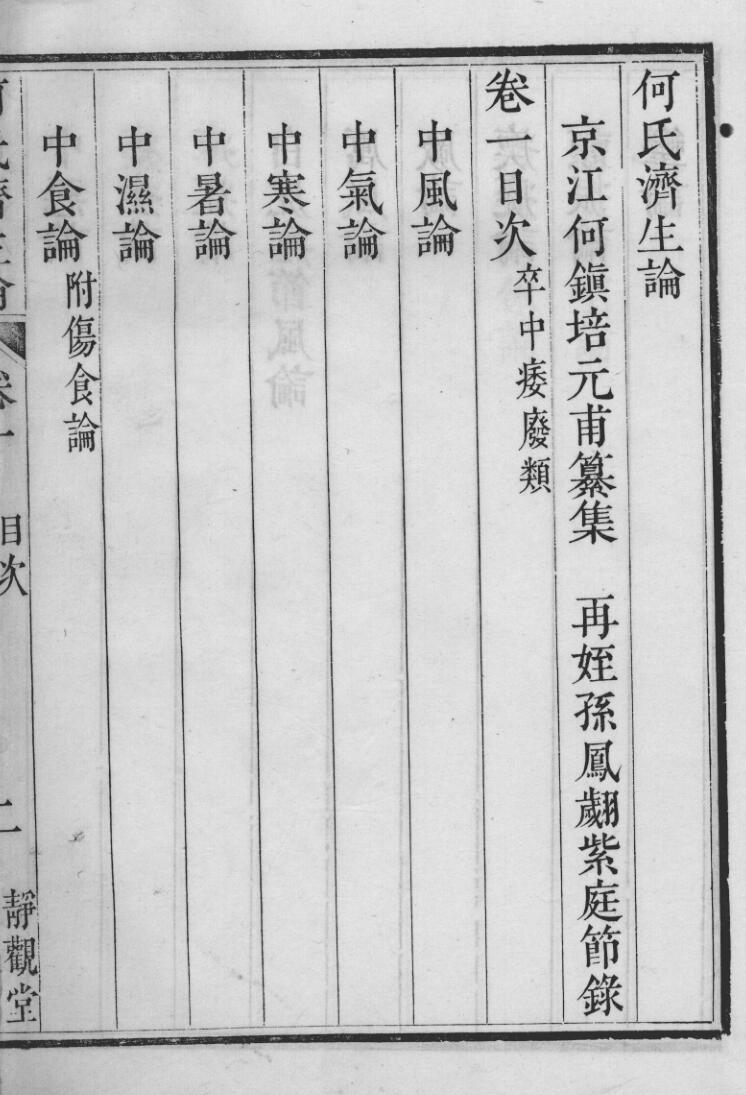 何氏濟生論
京江何鎭培元甫纂集　再姪孫鳳翽紫庭節錄
卷一目次卒中痿廢類
中風論
中氣論
中寒論
中暑論
中濕論
中食論附傷食論
何氏濟生論　卷一　目次　二　靜觀堂